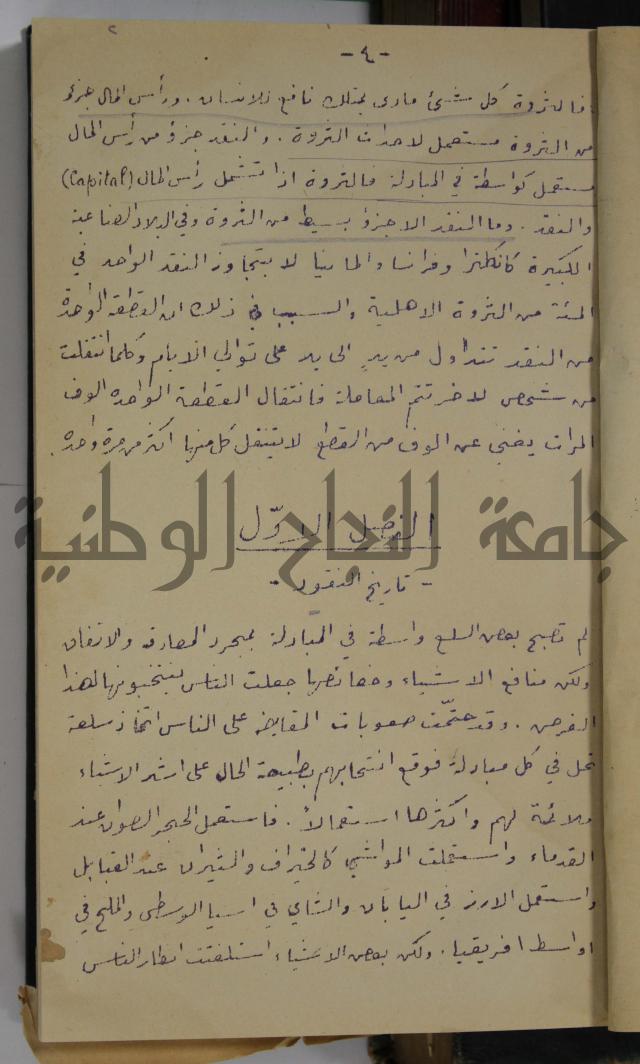 - ٤ -
فالثروة كل شئ مادى يمتلك نافع للانسان . ورأس المال جزؤ
من الثروة مستعمل لاحداث الثروة . والنقد جزؤ من رأس المال
مستعمل كواسطة في المبادلة فالثروة اذا تشمل رأس المال (Capital)
والنقد . وما النقد الا جزؤ بسيط من الثروة وفي البلاد الصناعية
الكبيرة كانكلترا وفرانسا والمانيا لا يتجاوز النقد الواحد في
المئة من الثروة الاهلية والسبب في ذلك ان القطعة الواحدة
من النقد تتداول من يد الى يد على توالي الايام وكلما انتقلت
من شخص لاخر تتم المعاملة فانتقال القطعة الواحده الوف
المرات يغني عن الوف من القطع لا يتنقل كل منها اكثر من مرة واحده .
جامعة النجاح الوطنية
الفصل الاوّل
- تاريخ النقود -
لم تصبح بعض السلع واسطة في المبادلة بمجرد المصادفه والاتفاق
ولكن منافع الاشياء وخصائصها جعلت الناس ينتخبونها لهذا
الغرض . وقد حتّمت صعوبات المقايضه على الناس اتخاذ سلعة
تحل في كل مبادلة فوقع انتخابهم بطبيعة الحال على اشد الاشياء
ملائمة لهم واكثرها استعمالاً . فاستعمل الحجر الصوان عند
القدماء واستعملت المواشي كالخراف والثيران عند القبايل
واستعمل الارز في اليابان والشاي في اسيا الوسطى والملح في
اواسط افريقيا . ولكن بعض الاشياء استلفتت انظار الناس